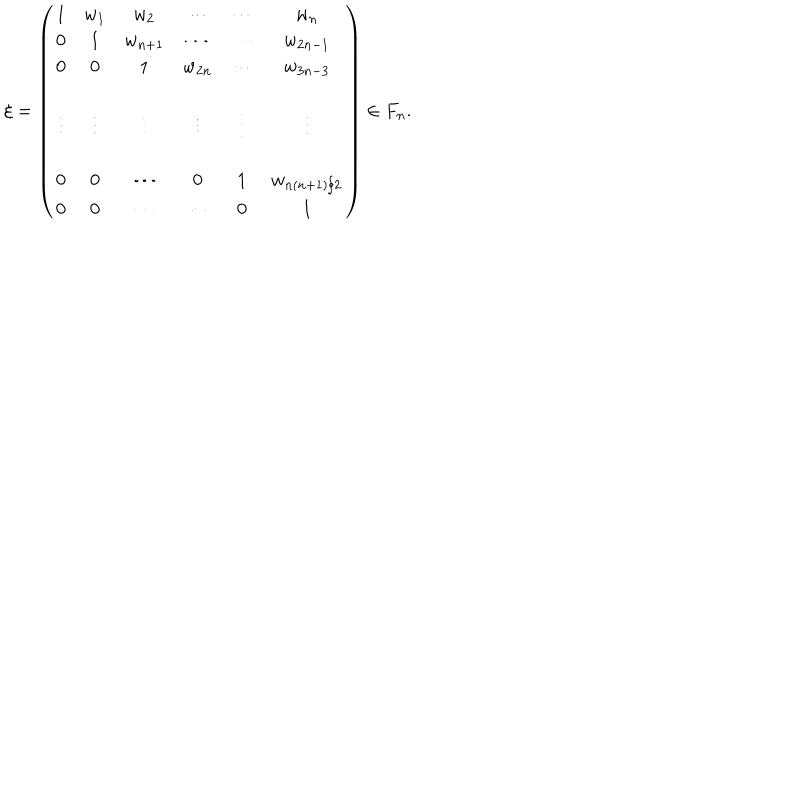 \xi = \begin{pmatrix} 1 & w_1 & w_2 & \cdots & \cdots & w_n \\ 0 & 1 & w_{n+1} & \cdots & \cdots & w_{2n-1} \\ 0 & 0 & 1 & w_{2n} & \cdots & w_{3n-3} \\ \vdots & \vdots & \vdots & \vdots & \vdots & \vdots \\ 0 & 0 & \cdots & 0 & 1 & w_{n(n+1)\oint 2} \\ 0 & 0 & \cdots & \cdots & 0 & 1 \end{pmatrix} \in F_n.